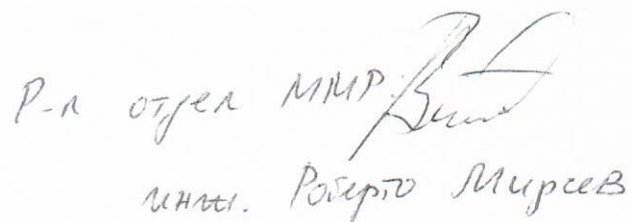 Р-л отдел ММР:
инж. Роберто Мирчев